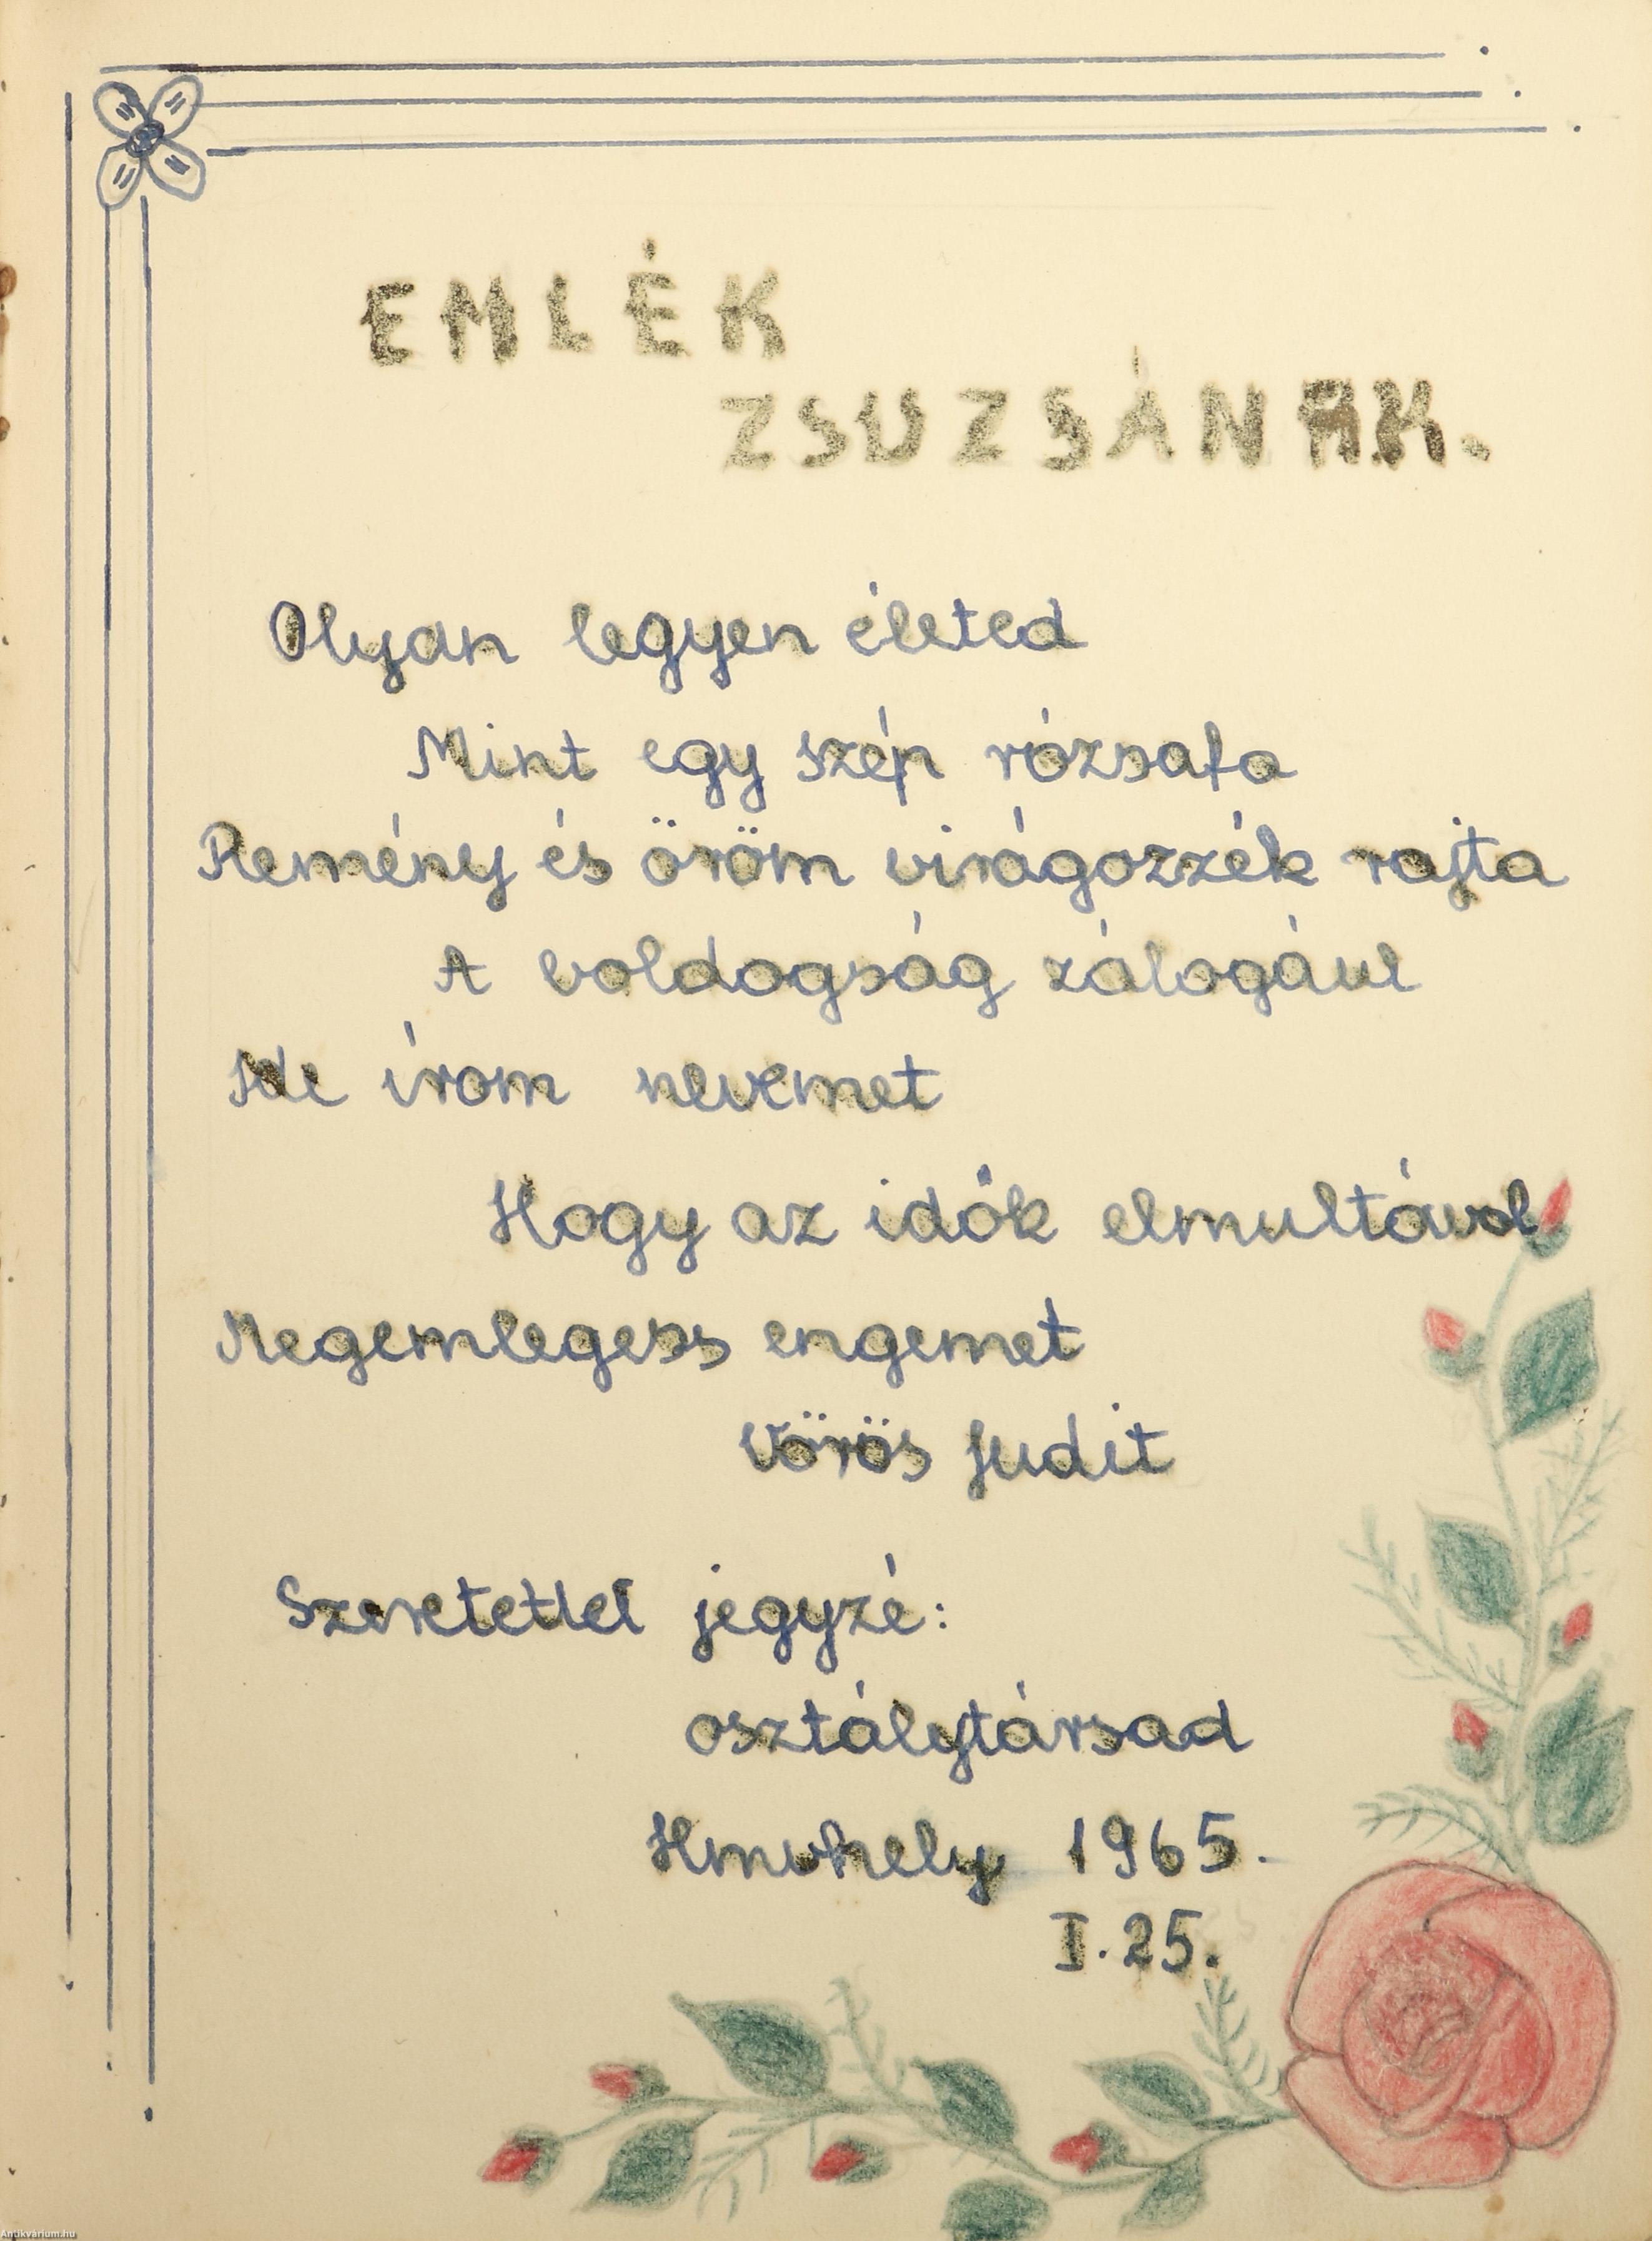 EMLÉK
ZSUZSÁNAK.
Olyan legyen életed
Mint egy szép rózsafa
Remény és öröm virágozzék rajta
A boldogság zálogául
Ide írom nevemet
Hogy az idők elmultával
Megemlegess engemet
Vörös Judit
Szeretettel jegyzé:
osztálytársad
Hmvhely 1965.
I. 25.
Antikvárium.hu